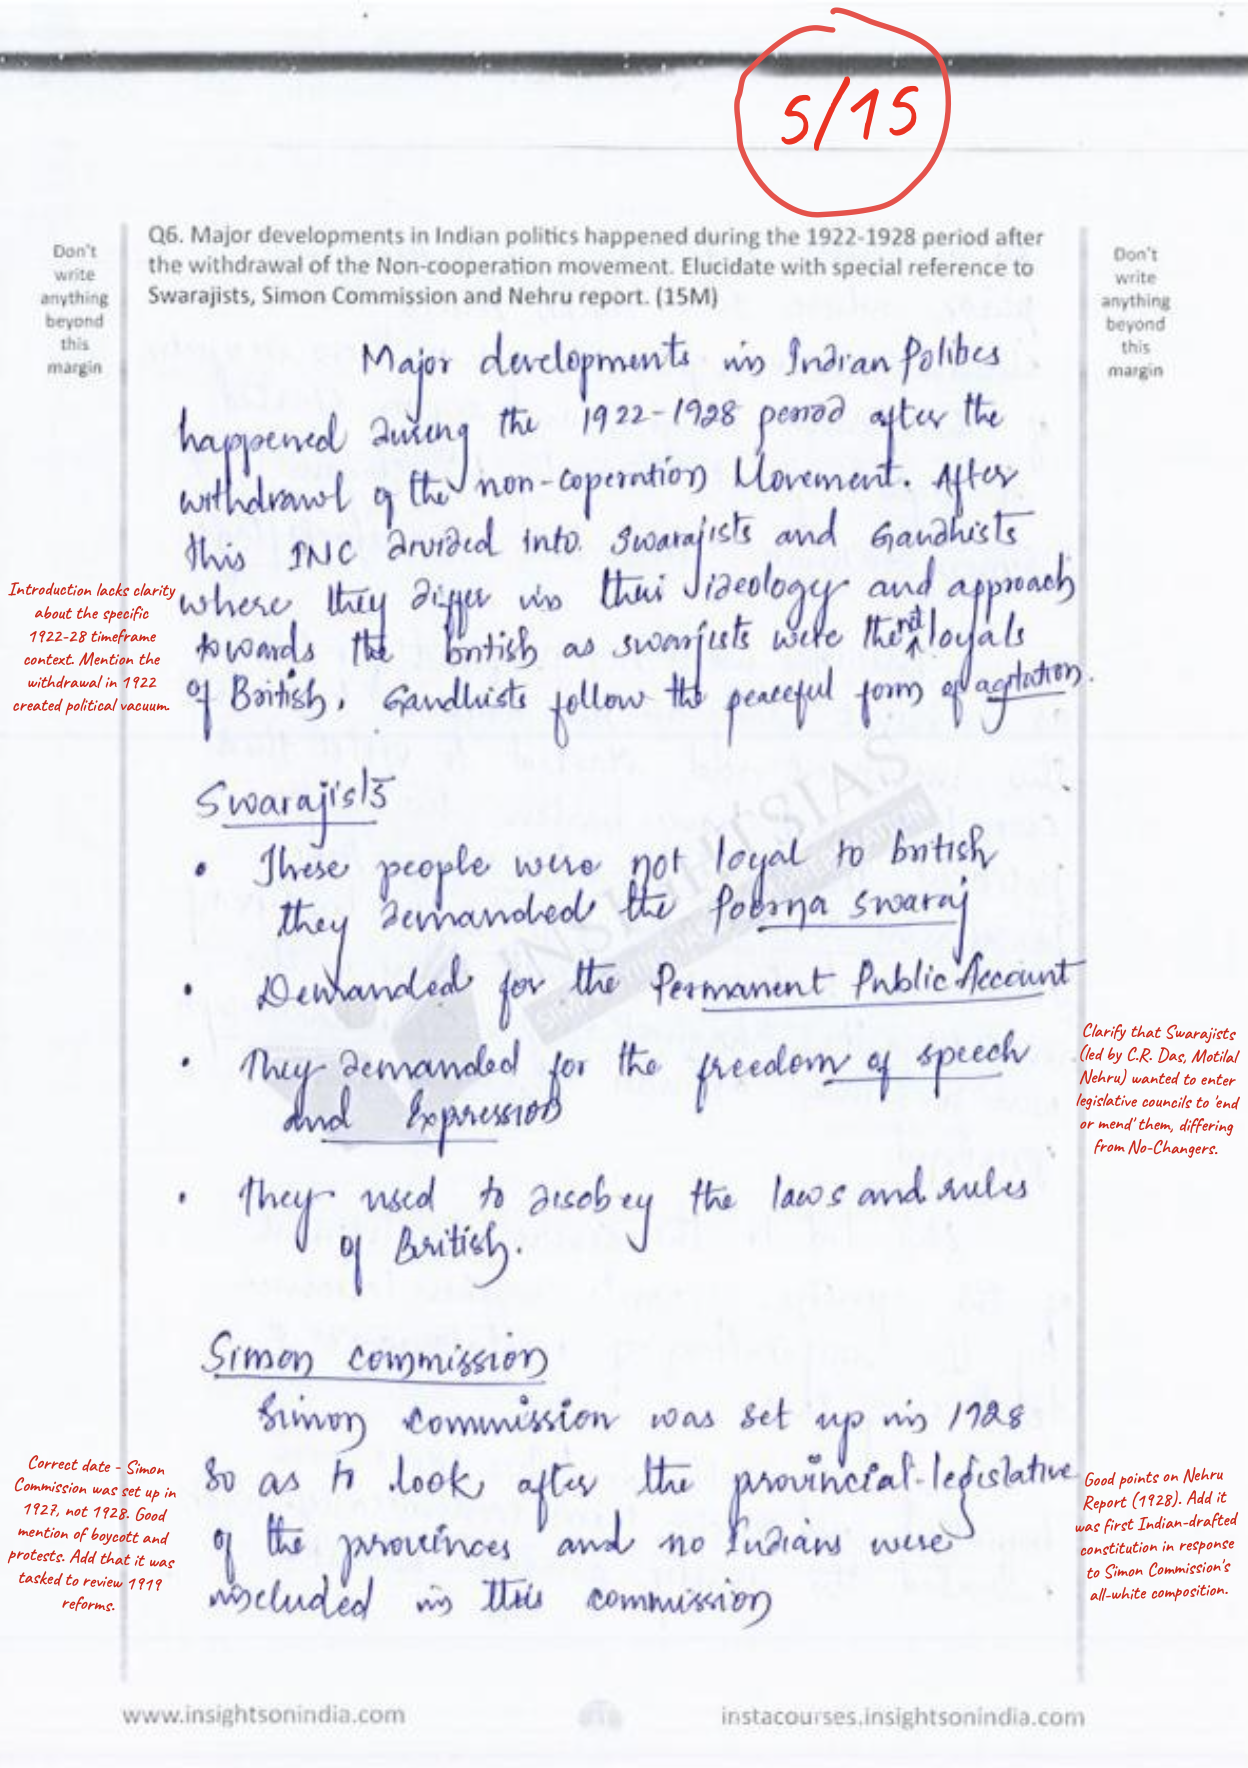 5/15
Don't
write
anything
beyond
this
margin
Q6. Major developments in Indian politics happened during the 1922-1928 period after
the withdrawal of the Non-cooperation movement. Elucidate with special reference to
Swarajists, Simon Commission and Nehru report. (15M)
Don't
write
anything
beyond
this
margin
Major developments in Indian Politics
happened during the 1922-1928 period after the
withdrawl of the non-coperation Movement. After
this INC divided into Swarajists and Gandhists
where they differ in their ideology and approach
towards the british as swarjists were the not loyals
of British. Gandhists follow the peaceful form of agitation.
Introduction lacks clarity
about the specific
1922-28 timeframe
context. Mention the
withdrawal in 1922
created political vacuum.
Swarajists
• These people were not loyal to british
they demanded the Poorna swaraj
• Demanded for the Permanent Public Account
• They demanded for the freedom of speech
and Expression
• They used to disobey the laws and rules
of British.
Clarify that Swarajists
(led by C.R. Das, Motilal
Nehru) wanted to enter
legislative councils to 'end
or mend' them, differing
from No-Changers.
Simon commission
Simon commission was set up in 1928
so as to look after the provincial-legislative
of the provinces and no Indians were
included in this commission
Correct date - Simon
Commission was set up in
1927, not 1928. Good
mention of boycott and
protests. Add that it was
tasked to review 1919
reforms.
Good points on Nehru
Report (1928). Add it
was first Indian-drafted
constitution in response
to Simon Commission's
all-white composition.
INSIGHTSIAS
www.insightsonindia.com
instacourses.insightsonindia.com